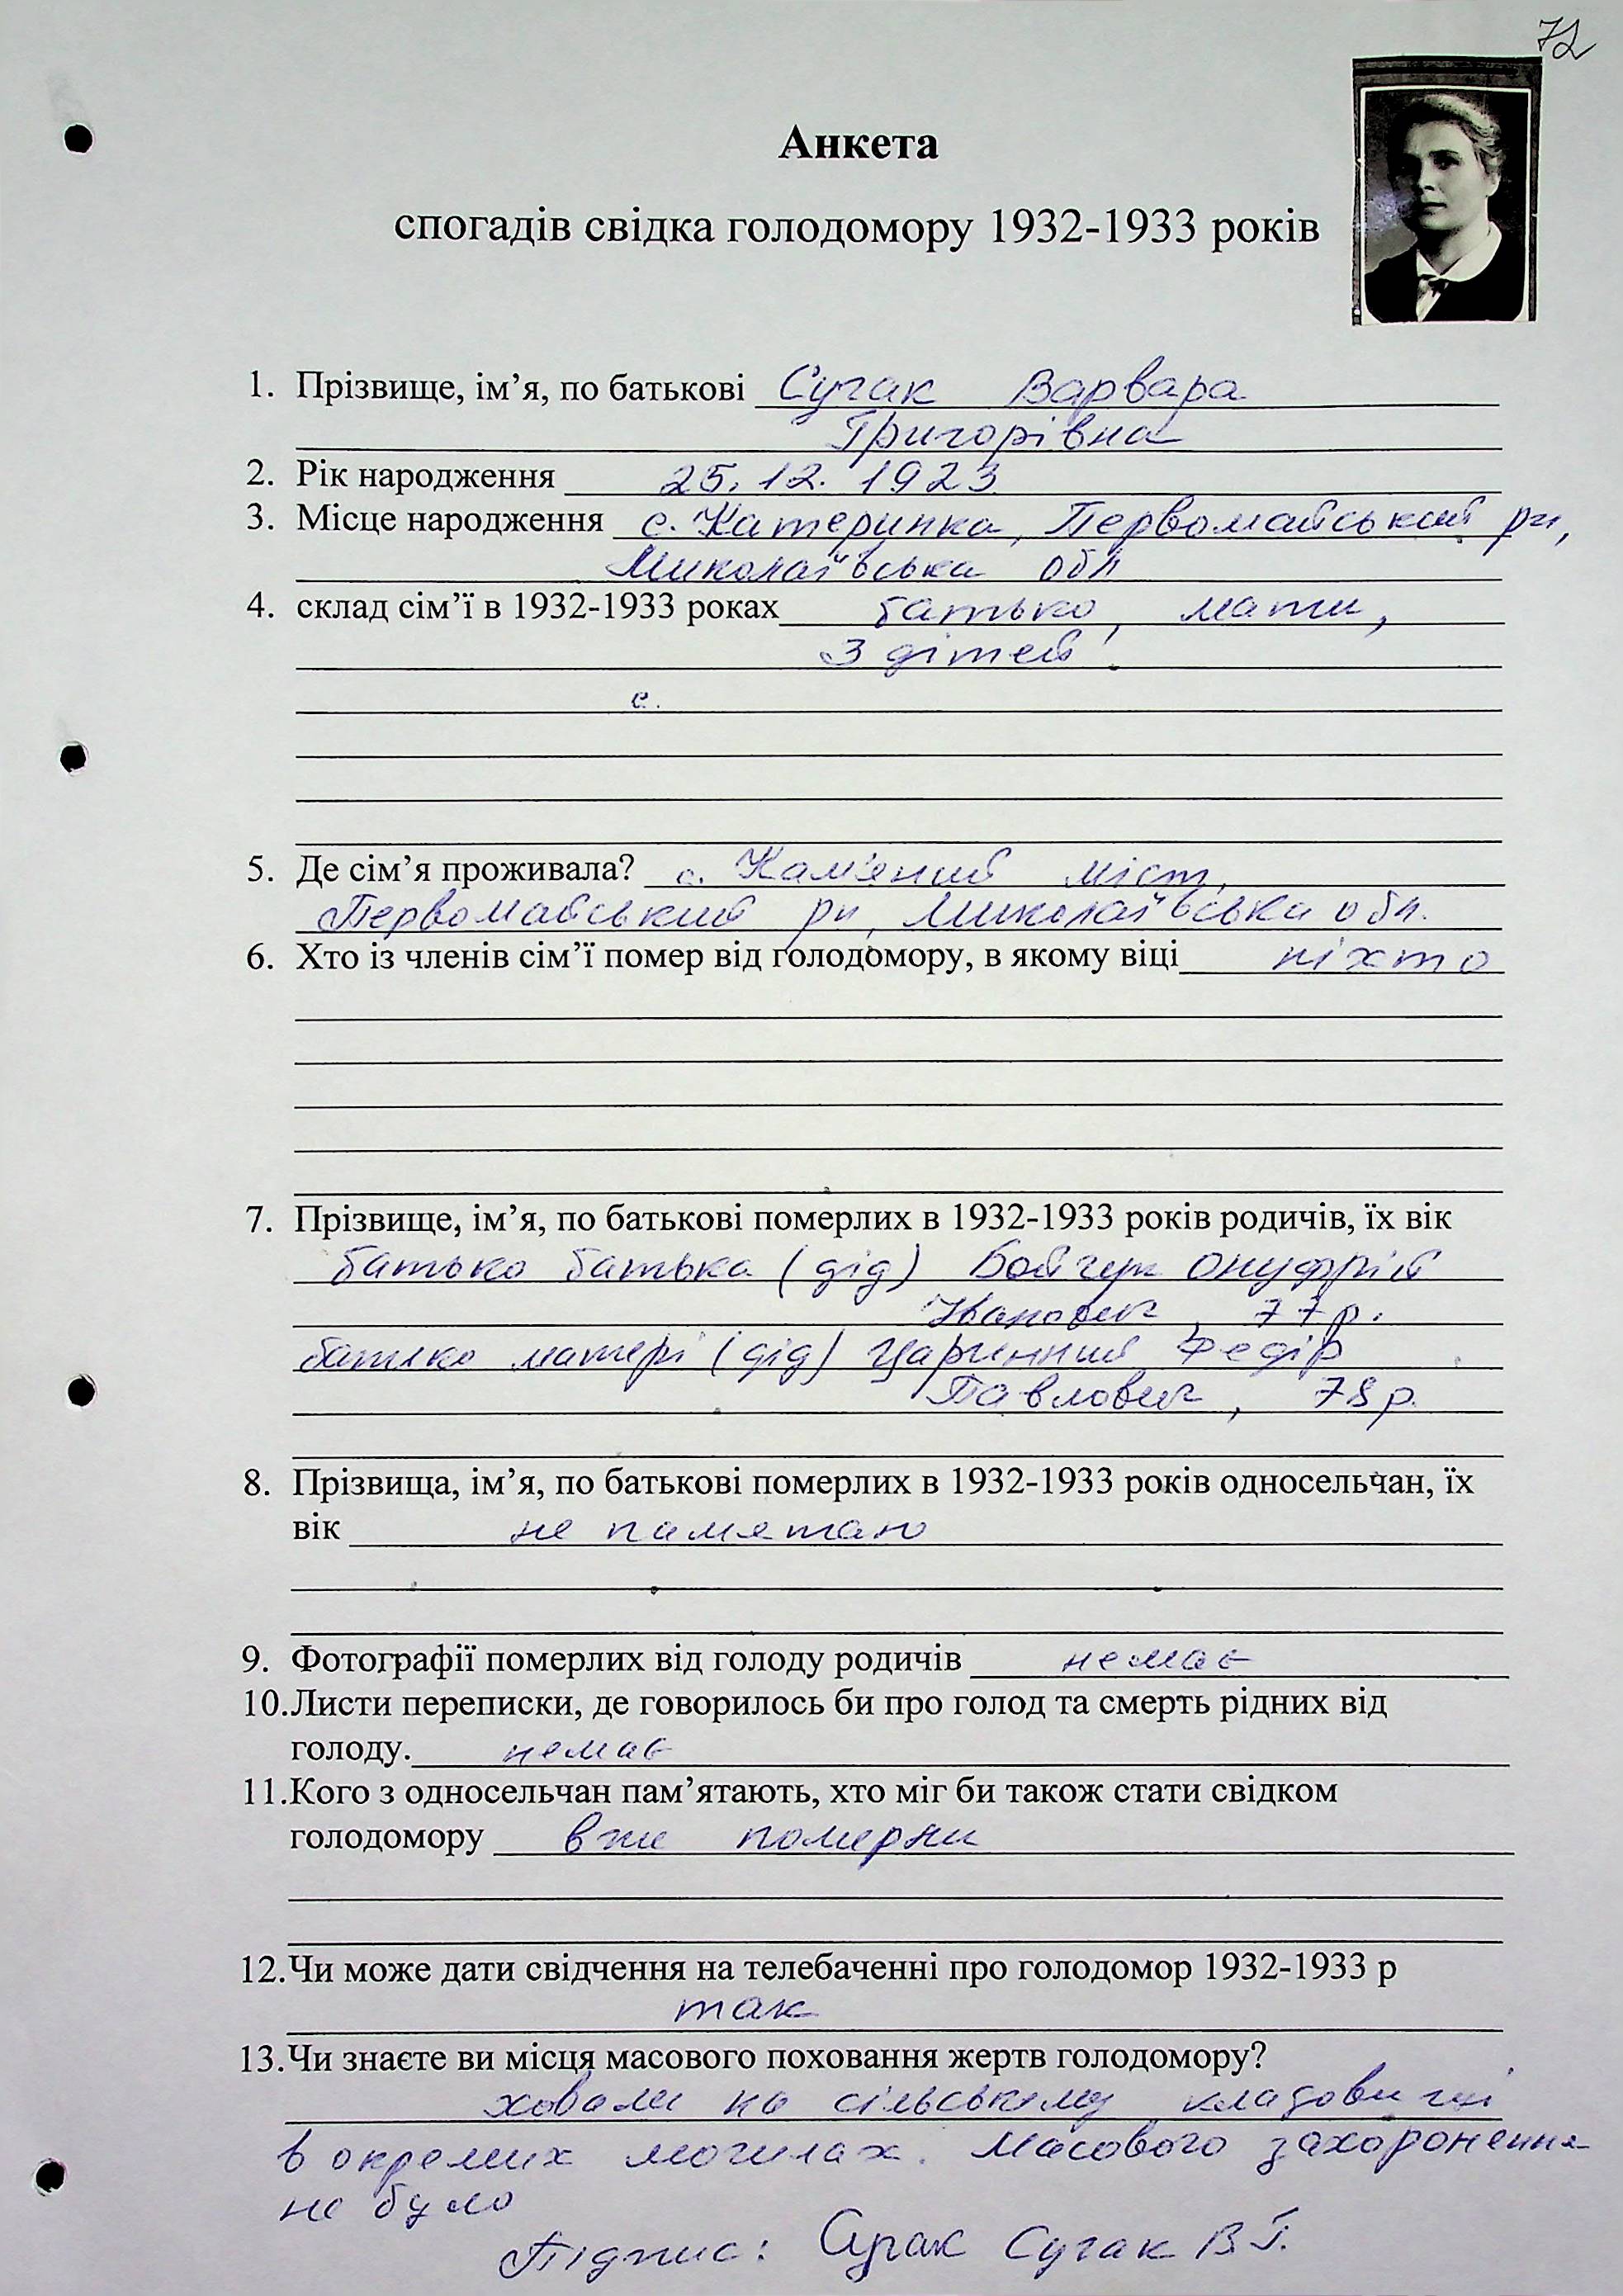 72
Анкета
спогадів свідка голодомору 1932-1933 років
1. Прізвище, ім’я, по батькові Сугак Варвара
Григорівна
2. Рік народження 25.12.1923
3. Місце народження с. Катеринка, Первомайський рн,
Миколаївська обл
4. склад сім’ї в 1932-1933 роках батько, мати,
3 дітей.
с.
5. Де сім’я проживала? с. Кам'яний міст,
Первомайський рн, Миколаївська обл.
6. Хто із членів сім’ї помер від голодомору, в якому віці ніхто
7. Прізвище, ім’я, по батькові померлих в 1932-1933 років родичів, їх вік
батько батька (дід) Бойчук Онуфрій
Іванович, 77 р.
батько матері (дід) Царинний Федір
Павлович, 78 р.
8. Прізвища, ім’я, по батькові померлих в 1932-1933 років односельчан, їх
вік не памятаю
9. Фотографії померлих від голоду родичів немає
10. Листи переписки, де говорилось би про голод та смерть рідних від
голоду. немає
11. Кого з односельчан пам’ятають, хто міг би також стати свідком
голодомору вже померли
12. Чи може дати свідчення на телебаченні про голодомор 1932-1933 р
так
13. Чи знаєте ви місця масового поховання жертв голодомору?
ховали на сільському кладовищі
в окремих могилах. Масового захоронення
не було
Підпис: Сугак Сугак В.Г.